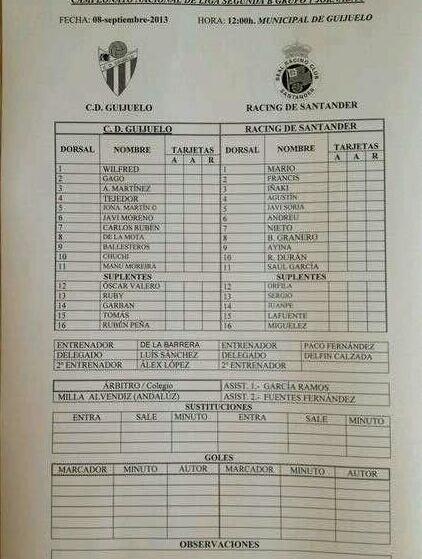 CAMPEONATO NACIONAL DE LIGA SEGUNDA B GRUPO 1 JORNADA
FECHA: 08-septiembre-2013 HORA: 12:00h. MUNICIPAL DE GUIJUELO
REAL RACING CLUB
SANTANDER
C.D. GUIJUELO RACING DE SANTANDER
C. D. GUIJUELO RACING DE SANTANDER
DORSAL NOMBRE TARJETAS DORSAL NOMBRE TARJETAS
A A R A A R
1 WILFRED 1 MARIO
2 GAGO 2 FRANCIS
3 A. MARTÍNEZ 3 IÑAKI
4 TEJEDOR 4 AGUSTÍN
5 JONA. MARTÍN 5 JAVI SORIA
6 JAVI MORENO 6 ANDREU
7 CARLOS RUBÉN 7 NIETO
8 DE LA MOTA 8 B. GRANERO
9 BALLESTEROS 9 AYINA
10 CHUCHI 10 R. DURÁN
11 MANU MOREIRA 11 SAÚL GARCÍA
SUPLENTES SUPLENTES
12 ÓSCAR VALERO 12 ORFILA
13 RUBY 13 SERGIO
14 GARBAN 14 JUANPE
15 TOMÁS 15 LAFUENTE
16 RUBÉN PEÑA 16 MIGUELEZ
ENTRENADOR DE LA BARRERA ENTRENADOR PACO FERNÁNDEZ
DELEGADO LUÍS SÁNCHEZ DELEGADO DELFIN CALZADA
2º ENTRENADOR ÁLEX LÓPEZ 2º ENTRENADOR
ÁRBITRO / Colegio ASIST. 1.- GARCÍA RAMOS
MILLA ALVENDIZ (ANDALUZ) ASIST. 2.- FUENTES FERNÁNDEZ
SUSTITUCIONES
ENTRA SALE MINUTO ENTRA SALE MINUTO
GOLES
MARCADOR MINUTO AUTOR MARCADOR MINUTO AUTOR
OBSERVACIONES